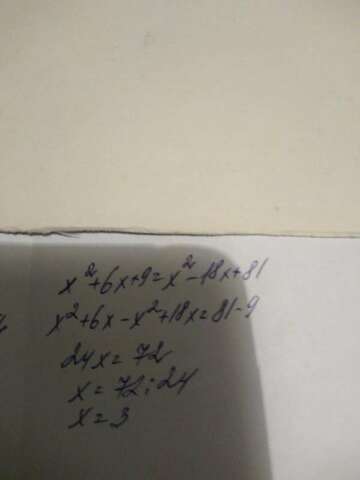 x²+6x+9=x²-18x+81
x²+6x-x²+18x=81-9
24x=72
x=72:24
x=3